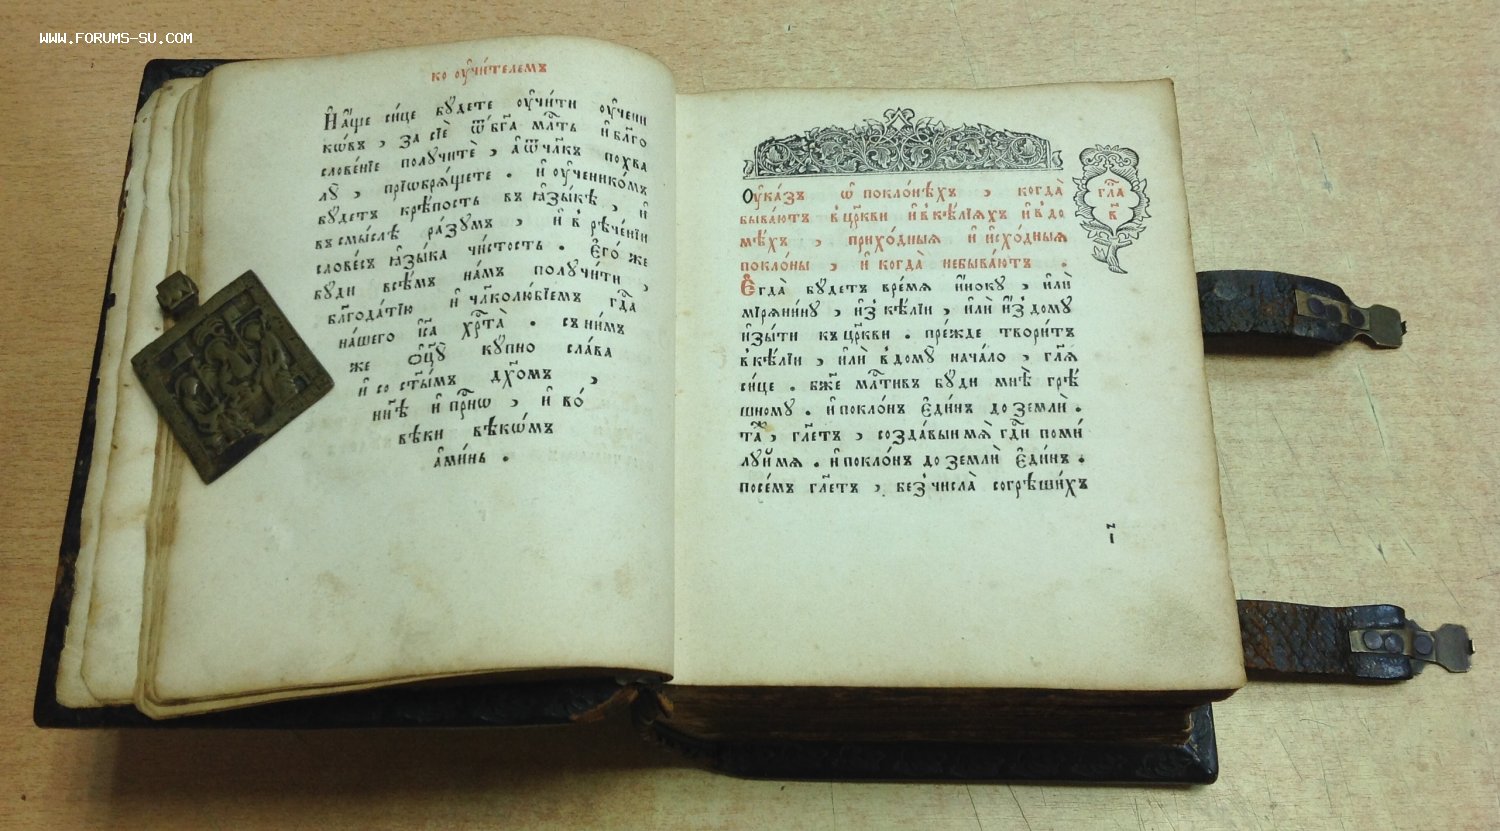 WWW.FORUMS-SU.COM
ко ᲂу҆чи́телемъ
И҆ а҆́ще си́це бꙋ́дете ᲂу҆чи́ти ᲂу҆чени
кѡ́въ , за сїѐ ѿ бг҃а мл҃ть и҆ бл҃го
слове́нїе получитѐ , а҆ ѿ чл҃къ похва
лꙋ̀ , прїѡбрѧ́щете . и҆ ᲂу҆ченико́мъ
бꙋ́детъ крѣ́пость въ ꙗ҆зы́кѣ , и҆
въ смы́слѣ ра́зумъ , и҆ в рѣче́нїи
слове́съ ꙗ҆зы́ка чи́стость . є҆го́ же
бꙋ́ди всѣ́мъ на́мъ получи́ти ,
бл҃года́тїю и҆ чл҃колю́бїемъ гд҃а
на́шего і҆с҃а хрⷭ҇та̀ . съ ни́мъ
же ѻ҆ц҃ꙋ̀ кꙋ́пно сла́ва
и҆ со ст҃ы́мъ дх҃омъ ,
нн҃ѣ и҆ прⷭ҇нѡ , и҆ во́
вѣ́ки вѣкѡ́мъ
а҆ми́нь .
Оу҆ка́зъ ѡ҆ покло́нѣхъ , когда̀
быва́ютъ в цр҃кви и҆ в кѣ́лїѧхъ и҆ в до
мѣ́хъ , прихо́дныѧ и҆ и҆схо́дныѧ
покло́ны , и҆ когда̀ небыва́ютъ .
гла
в҃
Є҆гда̀ бꙋ́детъ вре́мѧ и҆́нокꙋ , и҆лѝ
мїрѧни́нꙋ , и҆з̾ кѣ́лїи , и҆лѝ и҆з̾ до́мꙋ
и҆зы́ти къ цр҃кви . пре́жде твори́тъ
в кѣ́лїи , и҆лѝ в домꙋ̀ нача́ло , гл҃ѧ
си́це . бж҃е млⷭ҇тивъ бꙋ́ди мнѣ̀ грѣ́
шномꙋ . и҆ покло́нъ є҆ди́нъ до землѝ .
та́ , гл҃етъ , созда́выи мѧ̀ гд҃и поми́
лꙋй мѧ . и҆ покло́нъ до землѝ є҆ди́нъ .
посе́мъ гл҃етъ , без̾ числа̀ согрѣши́хъ